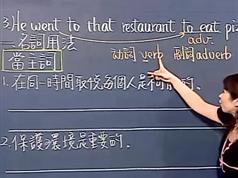 3.He went to that restaurant to eat pi
adv.
名詞用法
动詞 verb 副詞 adverb
當主詞
1.在同一時間取悅每個人是 的.
2.保護環境是重要的.